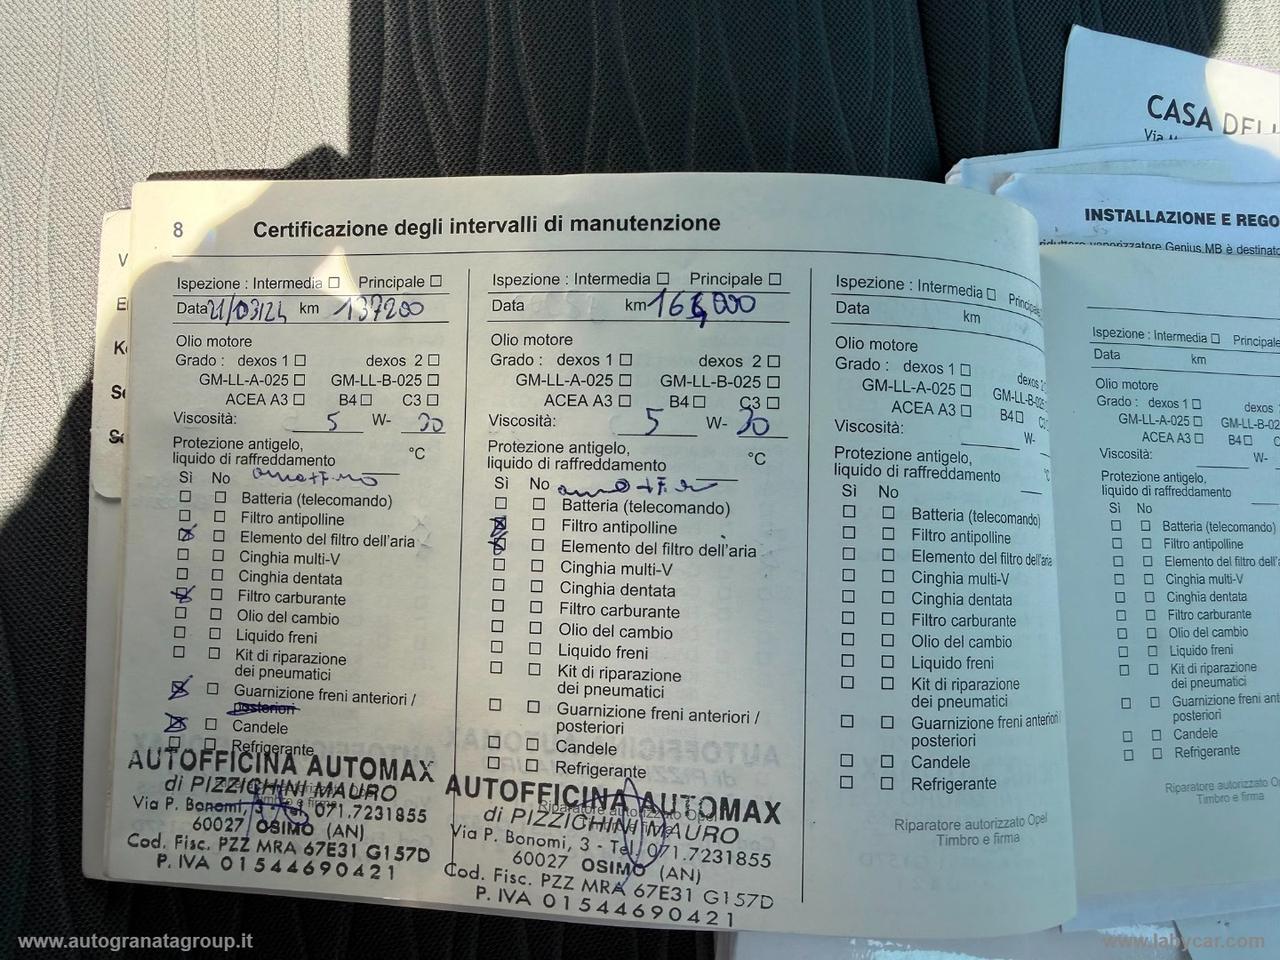 CASA DEL
Via
INSTALLAZIONE E REGO
riduttore vaporizzatore Genius MB è destinato
8 Certificazione degli intervalli di manutenzione
Ispezione : Intermedia ☐ Principale ☐
Data 21/03/24 km 137200
Olio motore
Grado : dexos 1 ☐ dexos 2 ☐
GM-LL-A-025 ☐ GM-LL-B-025 ☐
ACEA A3 ☐ B4 ☐ C3 ☐
Viscosità: 5 W- 30
Protezione antigelo,
liquido di raffreddamento °C
Sì No
Batteria (telecomando)
Filtro antipolline
Elemento del filtro dell'aria
Cinghia multi-V
Cinghia dentata
Filtro carburante
Olio del cambio
Liquido freni
Kit di riparazione
dei pneumatici
Guarnizione freni anteriori /
posteriori
Candele
Refrigerante
AUTOFFICINA AUTOMAX
di PIZZICHINI MAURO
Via P. Bonomi, 3 071.7231855
60027 OSIMO (AN)
Cod. Fisc. PZZ MRA 67E31 G157D
P. IVA 01544690421
Ispezione : Intermedia ☐ Principale ☐
Data km
Olio motore
Grado : dexos 1 ☐ dexos 2 ☐
GM-LL-A-025 ☐ GM-LL-B-025 ☐
ACEA A3 ☐ B4 ☐ C3 ☐
Viscosità: 5 W- 30
Protezione antigelo,
liquido di raffreddamento °C
Sì No
Batteria (telecomando)
Filtro antipolline
Elemento del filtro dell'aria
Cinghia multi-V
Cinghia dentata
Filtro carburante
Olio del cambio
Liquido freni
Kit di riparazione
dei pneumatici
Guarnizione freni anteriori /
posteriori
Candele
Refrigerante
Riparatore autorizzato Opel
AUTOFFICINA AUTOMAX
di PIZZICHINI MAURO
Via P. Bonomi, 3 - Tel. 071.7231855
60027 OSIMO (AN)
Cod. Fisc. PZZ MRA 67E31 G157D
P. IVA 01544690421
Ispezione : Intermedia ☐ Principale
Data km
Olio motore
Grado : dexos 1 ☐ dexos 2
GM-LL-A-025 ☐ GM-LL-B-025
ACEA A3 ☐ B4 ☐
Viscosità: W-
Protezione antigelo,
liquido di raffreddamento
Sì No
Batteria (telecomando)
Filtro antipolline
Elemento del filtro dell'aria
Cinghia multi-V
Cinghia dentata
Filtro carburante
Olio del cambio
Liquido freni
Kit di riparazione
dei pneumatici
Guarnizione freni anteriori /
posteriori
Candele
Refrigerante
Riparatore autorizzato Opel
Timbro e firma
Ispezione : Intermedia ☐ Principale
Data km
Olio motore
Grado : dexos 1 ☐ dexos
GM-LL-A-025 ☐ GM-LL-B-02
ACEA A3 ☐ B4 ☐ C
Viscosità: W-
Protezione antigelo,
liquido di raffreddamento
Sì No
Batteria (telecomando)
Filtro antipolline
Elemento del filtro dell'a
Cinghia multi-V
Cinghia dentata
Filtro carburante
Olio del cambio
Liquido freni
Kit di riparazione
dei pneumatici
Guarnizione freni ant
posteriori
Candele
Refrigerante
Riparatore autorizzato O
Timbro e firma
www.autogranatagroup.it
www.labycar.com